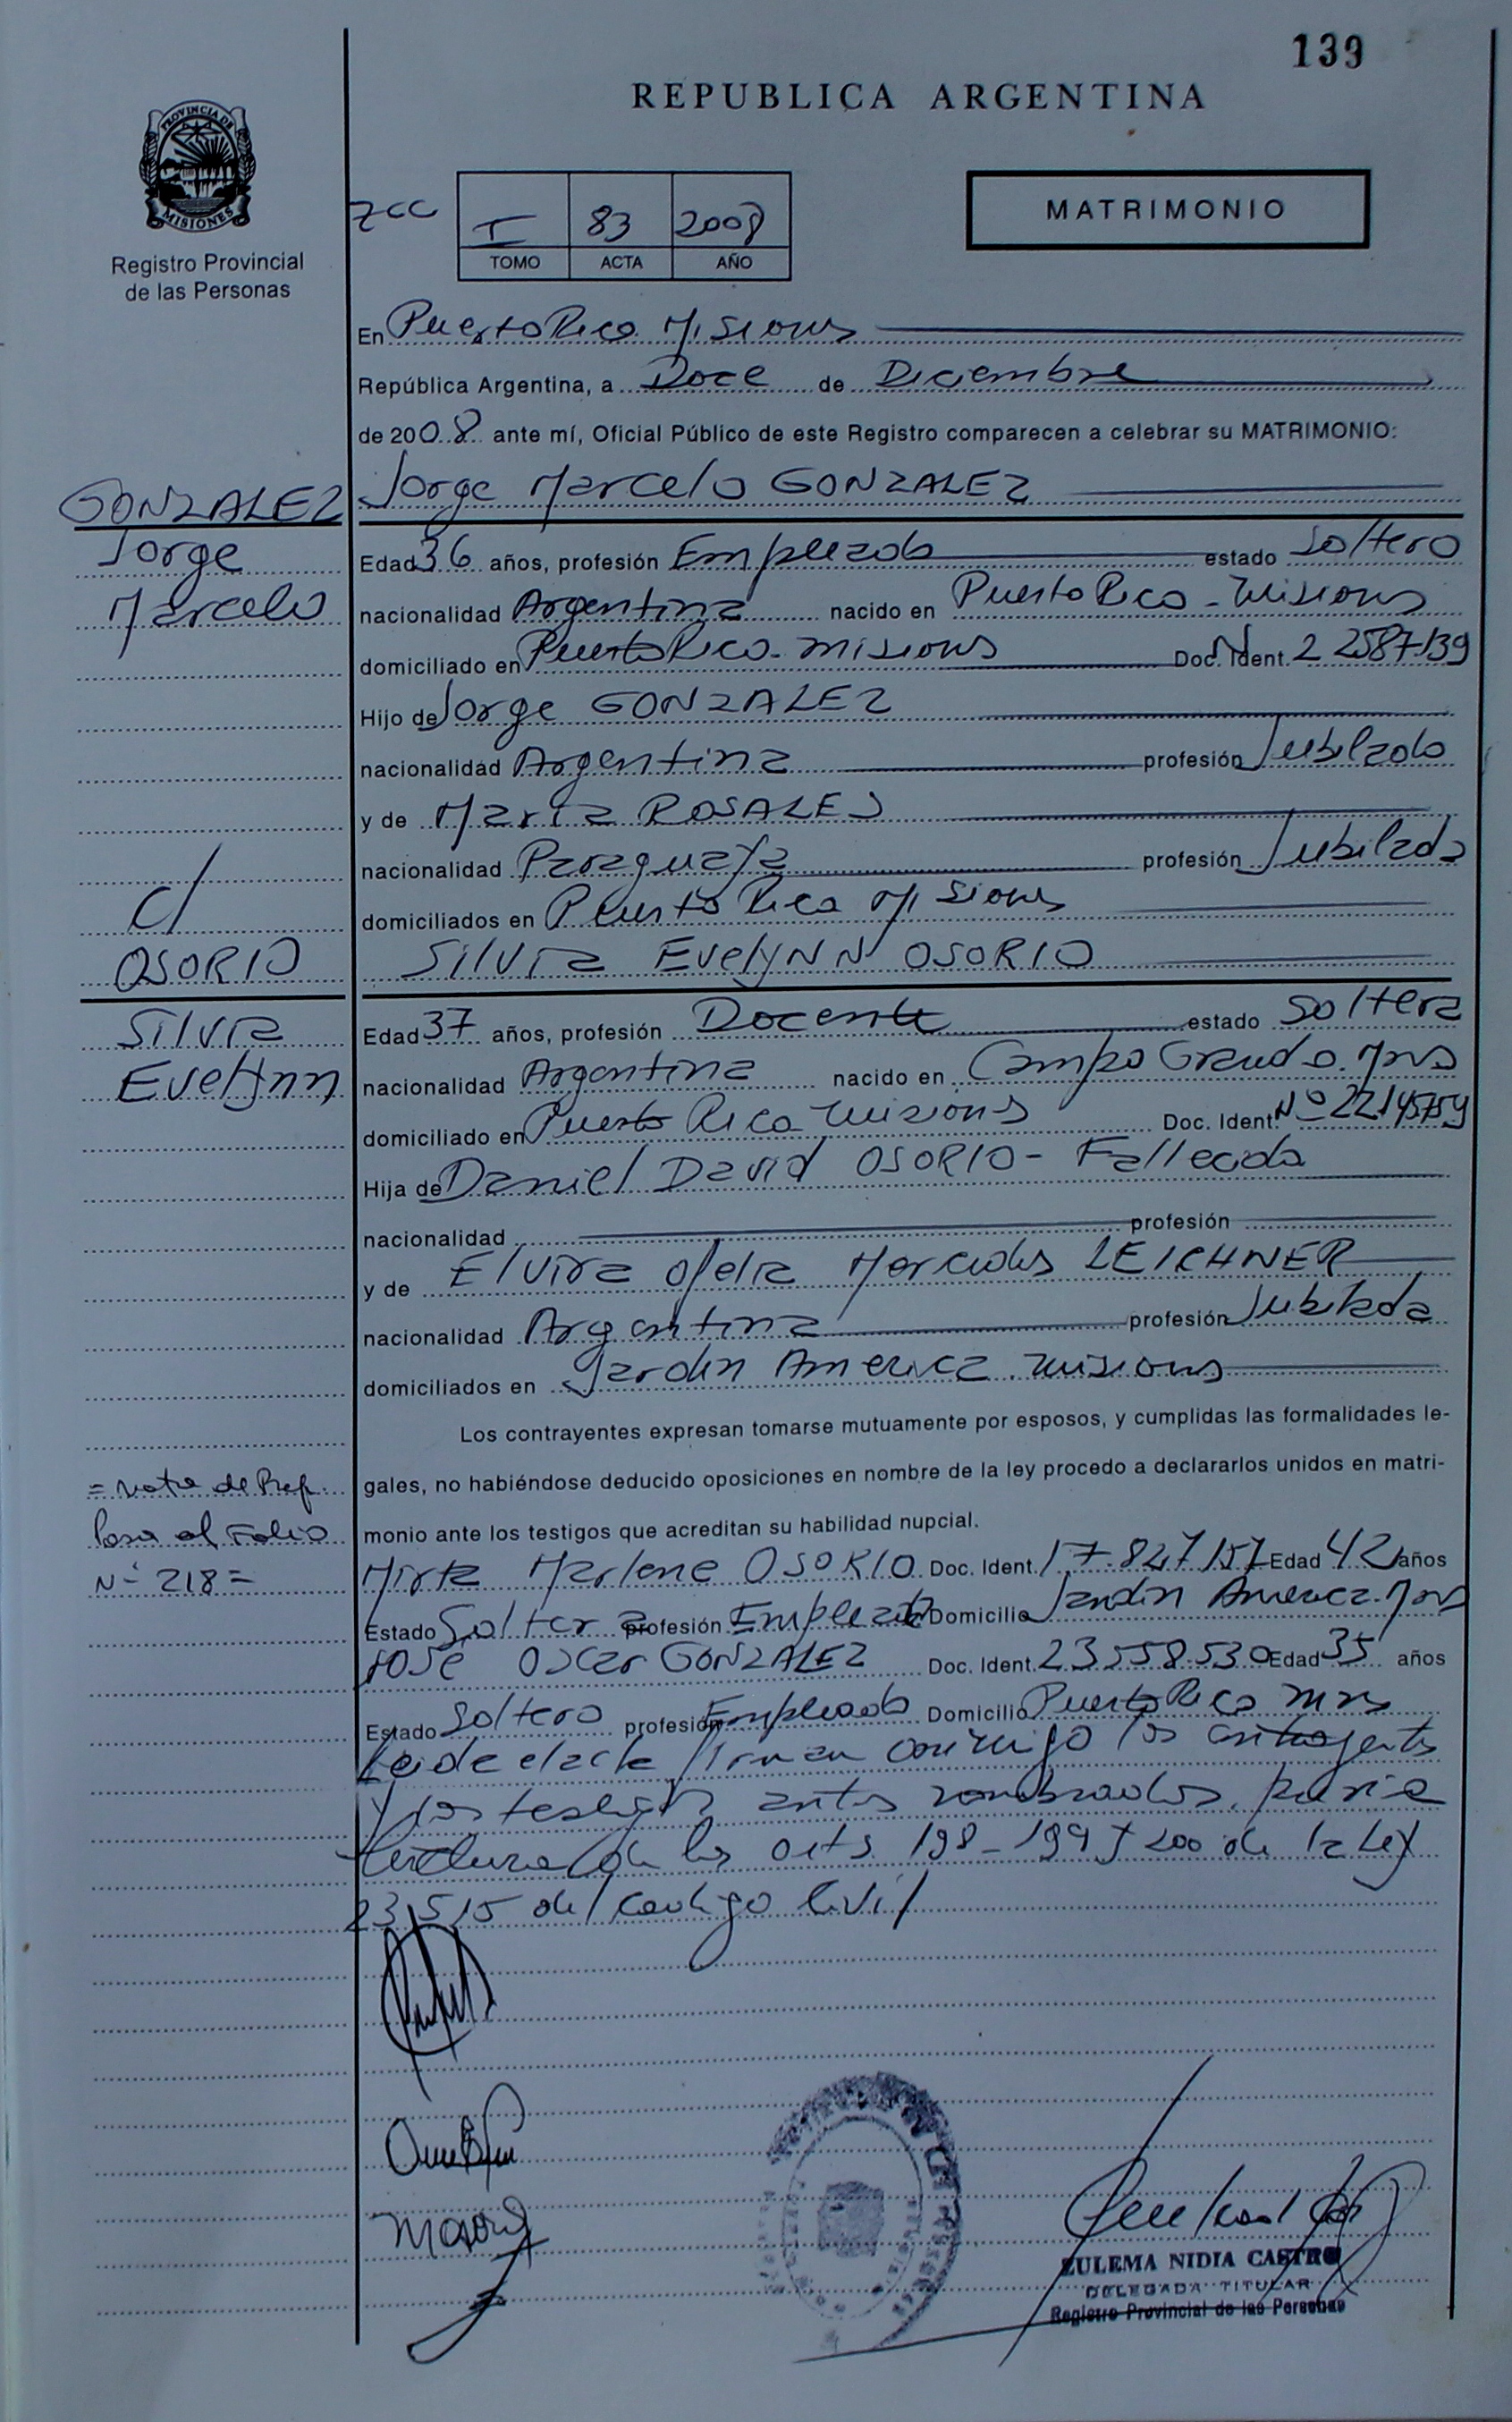 139
REPUBLICA ARGENTINA
PROVINCIA DE
MISIONES
Registro Provincial
de las Personas
zcc I 83 2008
TOMO ACTA AÑO
MATRIMONIO
En Puerto Rico Misiones
República Argentina, a Doce de Diciembre
de 2008 ante mí, Oficial Público de este Registro comparecen a celebrar su MATRIMONIO:
GONZALEZ Jorge Marcelo GONZALEZ
Jorge Edad 36 años, profesión Empleado estado Soltero
Marcelo nacionalidad Argentina nacido en Puerto Rico - Misiones
domiciliado en Puerto Rico - Misiones Doc. Ident. Nº 22587139
Hijo de Jorge GONZALEZ
nacionalidad Argentina profesión Jubilado
y de Maria ROSALES
nacionalidad Paraguaya profesión Jubilada
c/ domiciliados en Puerto Rico Misiones
OSORIO Silvia Evelynn OSORIO
Silvia Edad 37 años, profesión Docente estado Soltera
Evelynn nacionalidad Argentina nacido en Campo Grande. Mns
domiciliado en Puerto Rico Misiones Doc. Ident. Nº 22145759
Hija de Daniel David OSORIO - Fallecido
nacionalidad profesión
y de Elvira Ofelia Mercedes LEICHNER
nacionalidad Argentina profesión Jubilada
domiciliados en Jardin America. Misiones
Los contrayentes expresan tomarse mutuamente por esposos, y cumplidas las formalidades le-
= Nota de Ref. gales, no habiéndose deducido oposiciones en nombre de la ley procedo a declararlos unidos en matri-
Pasa al Folio monio ante los testigos que acreditan su habilidad nupcial.
Nº 218 = Mirta Marlene OSORIO Doc. Ident. 17.827157 Edad 42 años
Estado Soltera profesión Empleada Domicilio Jardin America. Mns
José Oscar GONZALEZ Doc. Ident. 23558.530 Edad 35 años
Estado Soltero profesión Empleado Domicilio Puerto Rico Mns
Leida el acta firman conmigo los contrayentes
y los testigos antes nombrados, previa
lectura de los arts 198 - 199 y 200 de la Ley
23.515 del Codigo Civil
ZULEMA NIDIA CASTRO
DELEGADA TITULAR
Registro Provincial de las Personas